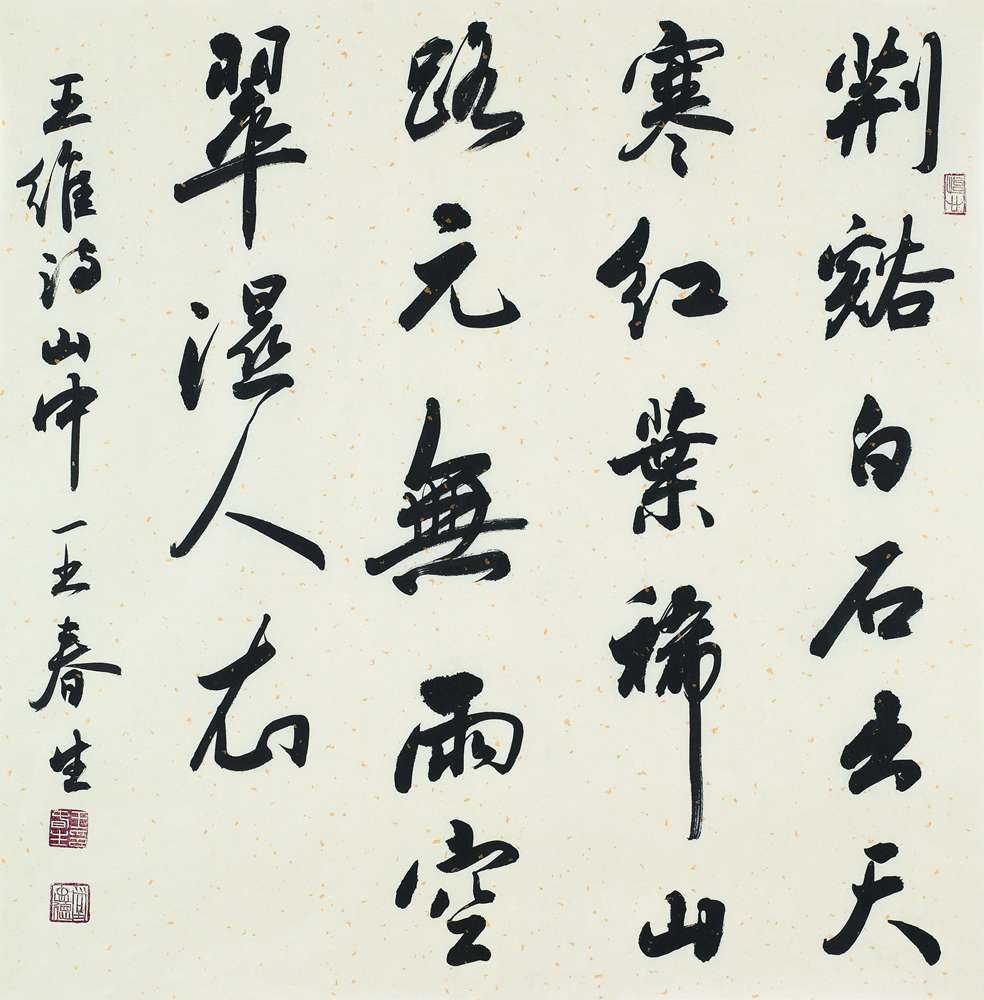 荆谿白石出天
寒红葉稀山
路元無雨空
翠濕人衣
王維诗山中 王春生